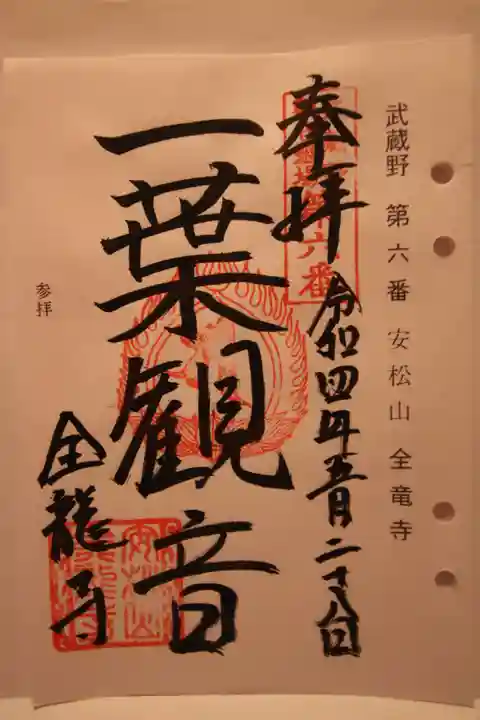 武蔵野 第六番 安松山 全竜寺
奉拝 令和四年五月二十八日
第六番
一葉観音
全龍寺
参拝